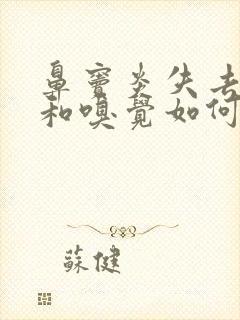 鼻竇炎失去
和嗅覺如何
蘇健